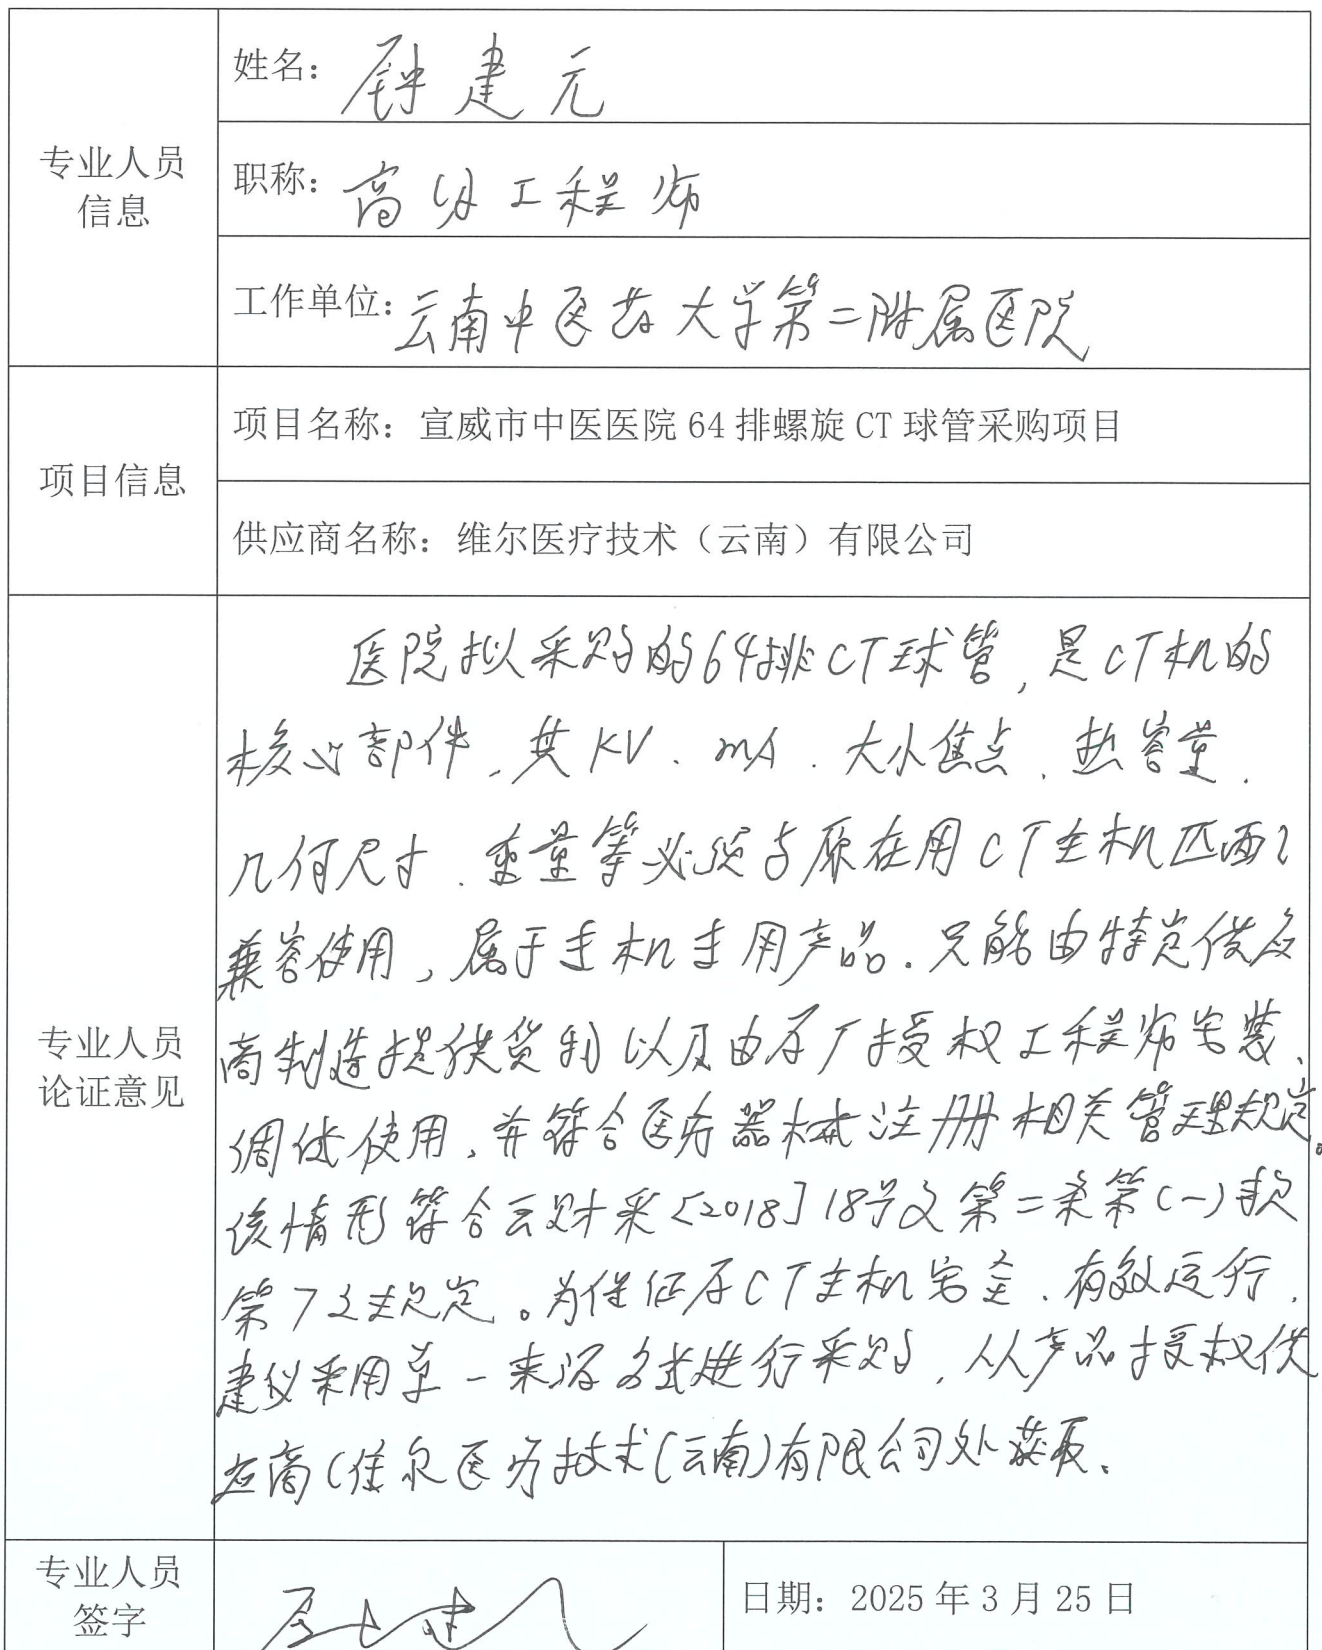 专业人员
信息
姓名：钟建元
职称：高级工程师
工作单位：云南中医药大学第二附属医院
项目信息
项目名称：宣威市中医医院 64 排螺旋 CT 球管采购项目
供应商名称：维尔医疗技术（云南）有限公司
专业人员
论证意见
医院拟采购的64排CT球管，是CT机的
核心部件，其KV、mA、大小焦点、热容量、
几何尺寸、重量等必须与原在用CT主机匹配
兼容使用，属于专机专用产品。只能由特定供应
商制造提供货物以及由原厂授权工程师安装、
调试使用，并符合医疗器械注册相关管理规定。
该情形符合云财采[2018]18号文第二条第(一)款
第7之规定。为保证原CT主机安全、有效运行，
建议采用单一来源方式进行采购，从产品授权供
应商(维尔医疗技术(云南)有限公司处获取。
专业人员
签字
日期：2025 年 3 月 25 日